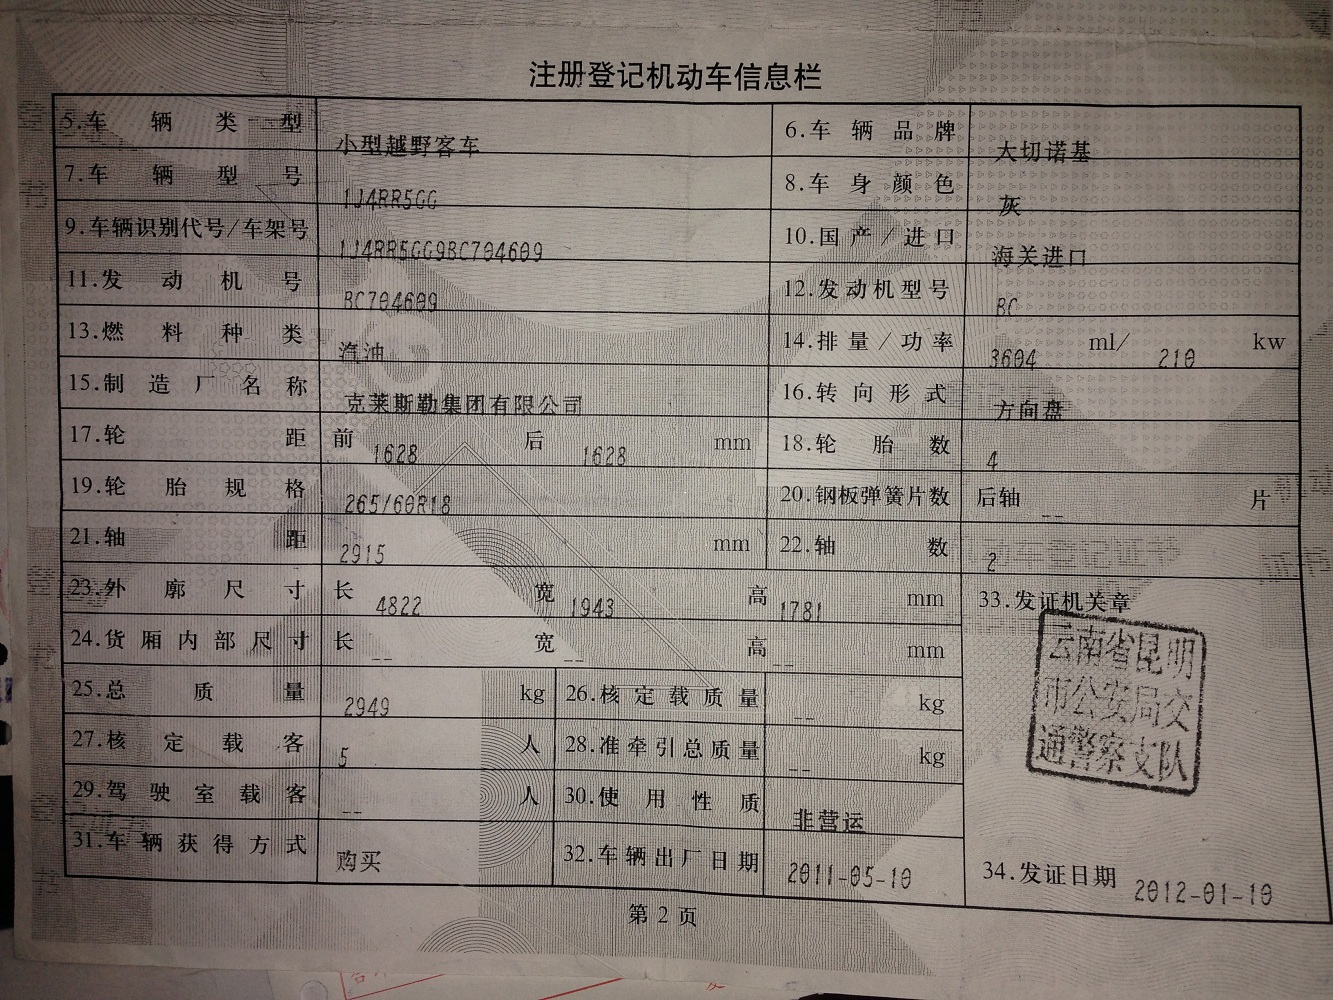 注册登记机动车信息栏
5.车辆类型 小型越野客车 6.车辆品牌 大切诺基
7.车辆型号 1J4RR5GG 8.车身颜色 灰
9.车辆识别代号/车架号 1J4RR5GG9BC704609 10.国产/进口 海关进口
11.发动机号 BC704609 12.发动机型号 BC
13.燃料种类 汽油 14.排量/功率 3604 ml/ 210 kw
15.制造厂名称 克莱斯勒集团有限公司 16.转向形式 方向盘
17.轮距 前 1628 后 1628 mm 18.轮胎数 4
19.轮胎规格 265/60R18 20.钢板弹簧片数 后轴 -- 片
21.轴距 2915 mm 22.轴数 2
23.外廓尺寸 长 4822 宽 1943 高 1781 mm 33.发证机关章
24.货厢内部尺寸 长 -- 宽 -- 高 -- mm
云南省昆明
市公安局交
通警察支队
25.总质量 2949 kg 26.核定载质量 -- kg
27.核定载客 5 人 28.准牵引总质量 -- kg
29.驾驶室载客 -- 人 30.使用性质 非营运
31.车辆获得方式 购买 32.车辆出厂日期 2011-05-10 34.发证日期 2012-01-10
第 2 页